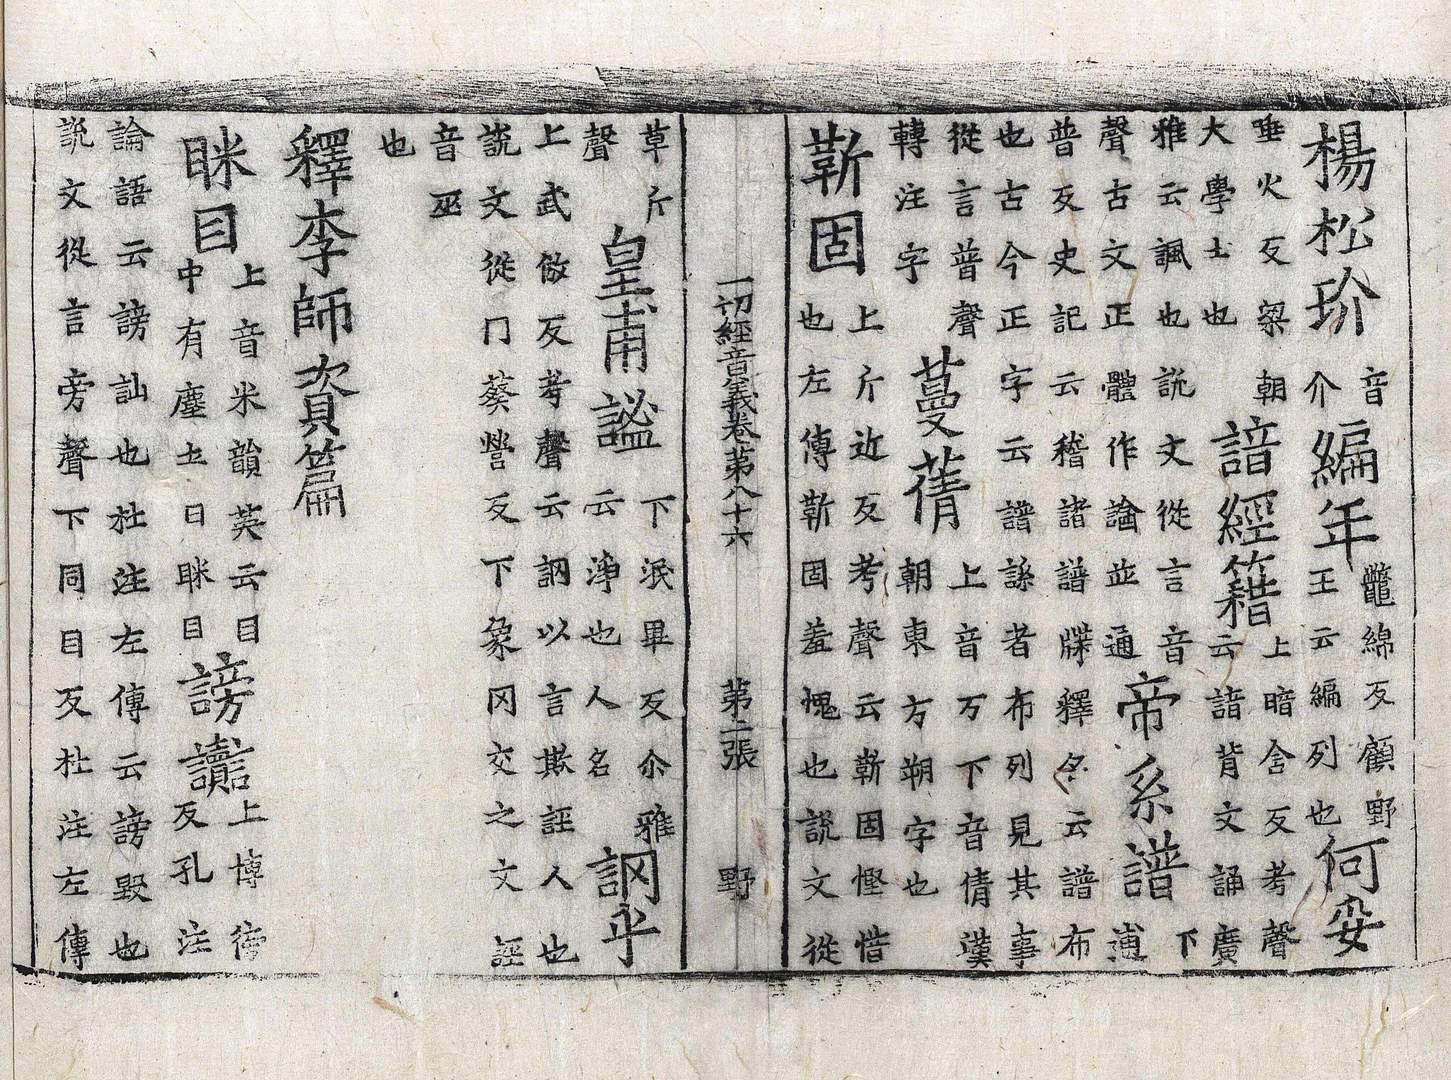 楊松玠音介編年鼈綿反顧野王云編列也何妥
唾火反梁朝大學士也諳經籍上暗含反考聲云諳背文誦廣
雅云諷也說文從言音聲古文正體作論並通帝系譜下逋
普反史記云稽諸譜牒釋名云譜布也古今正字云譜謠者布列見其事
從言普聲轉注字蔓蒨上音万下音倩漢朝東方朔字也
靳固上斤近反考聲云靳固慳惜也左傳靳固羞愧也說文從
一切經音義卷第八十六 第二張 野
草斤聲皇甫謐下泯畢反尒雅云淨也人名誷乎
上武倣反考聲云誷以言欺誣人也說文從冂葵營反下象网交之文誣
音巫也
釋李師資篇
眯目上音米韻英云目中有塵土曰眯目謗讟上博徬反孔注
論語云謗訕也杜注左傳云謗毀也說文從言旁聲下同目反杜注左傳